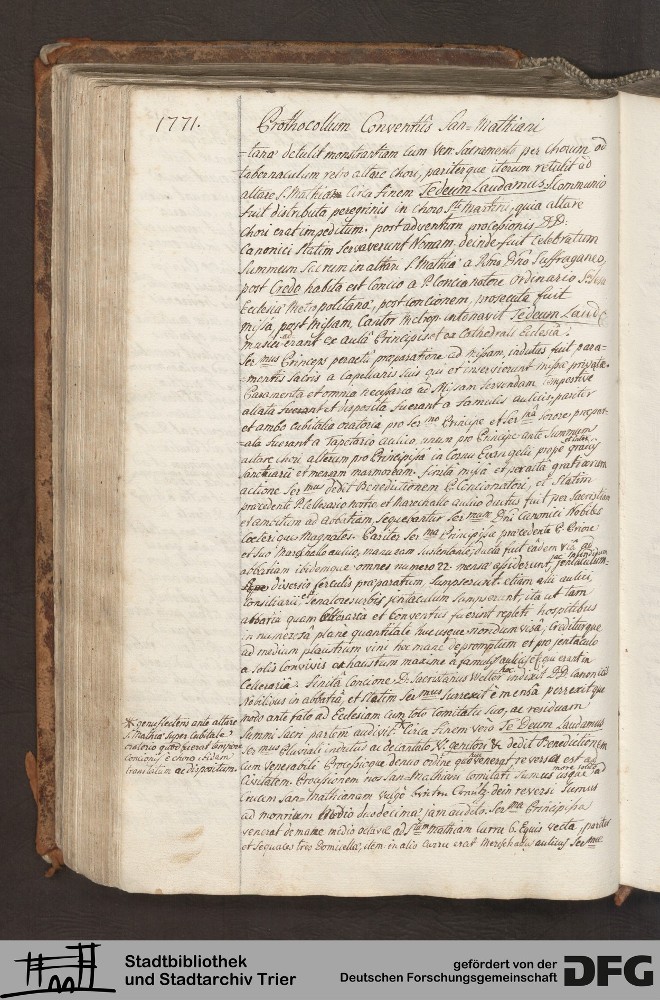 1771. Prothocollum Conventûs San=Mathiani
=tana detulit monstrantiam cum Ven: Sacramento per chorum ad
tabernaculum retro altare chori, pariterque iterum retulit ad
altare S. Mathiae circa finem Te deum Laudamus. S. communio
fuit distributa peregrinis in choro Sti Martini, quia altare
chori erat impeditum. post adventum processionis DD:
Canonici statim servaverunt Nonam. deinde fuit celebratum
summum Sacrum in altari S. Mathiae a Rmo Dno Suffraganeo,
post Credo habita est Concio a P. Concionatore ordinario
Ecclesiae Metropolitanae, post concionem, prosecuta fuit
missa, post missam, Cantor Metrop: intonavit Te deum Laud:
musici erant ex aulâ Principis et ex Cathedrali Ecclesiâ.
Sermus Princeps peractâ praeparatione ad missam, indutus fuit para=
=mentis sacris a Capellanis suis qui et inservierunt missae privatae.
Paramenta et omnia necessaria ad Missam servendam tempestive
allata fuerant et disposita fuerant a famulis aulicis, pariter
et ambo cubitalia oratoria pro Sermo Principe et Sermâ sorore, praepar=
=ata fuerant a Tapetario aulico, unum pro Principe ante summum
altare chori, alterum pro Principissâ in Cornu Evangelii prope gradus
Sanctuarii et mensam marmoream. finitâ missâ et peractâ gratiarum
actione Sermus dedit Benedictionem P. Concionatori, et statim
praecedente P. Cellerario nostro et Mareschallo aulico ductus fuit per Sacristiam
et ambitum ad abbatiam, sequerantur Sermum Dni Canonici Nobiles
Caeterique Magnates. Pariter Serma Principissa praecedente P. Priore
et suo Mareschallo aulico, manu eam sustentante, ducta fuit eâdem viâ ad
abbatiam ibidemque omnes numero 22 mensae assiderunt, ad jentaculum
diversis ferculis praeparatum, sumpserunt etiam alii aulici,
Consiliarii, et Senatores urbis jentaculum sumpserunt, ita ut tam
abbatia quam Celleraria et Conventus fuerint repleti hospitibus
in numerosâ plane quantitate hucusque nondum visâ, crediturque
ad medium plaustrum vini hoc mane depromptum et pro jentaculo
a solis convivis exhaustum maxime a famulis aulicis et qui erant in
Celleraria. finitâ Concione Dr. Sacristanus Welter hoc indixit DD. Canonicis
Nobilibus in abbatiâ, et statim Sermus surrexit e mensa perrexitque
modo ante fato ad Ecclesiam cum toto Comitatu suo, ac residuam
Summi Sacri partem audivit. Circa finem vero Te Deum Laudamus
Sermus Pluviali indutus ac decantato V. genitori & dedit Benedictionem
cum Venerabili. Processioque denuo ordine quo venerat reversa est ad
Civitatem. Processionem nos San=Mathiani comitati sumus more solito usque ad
Crucem San=Mathianam vulgo breiten Creutz, dein reversi sumus
ad monrium Medio duodecimae jam audito. Serma Principissa
venerat de mane medio octavae ad Stum Mathiam curru 6. Equis vecta, pariter
et sequaces tres Domicellae, item in alio curru erat Mareschallus aulicus Sermae
* genuflectens ante altare
S. Mathiae super Cubitale
oratorio quod fuerat tempore
concionis e choro ibidem
translatum ac dispositum.
Stadtbibliothek
und Stadtarchiv Trier
gefördert von der
Deutschen Forschungsgemeinschaft
DFG